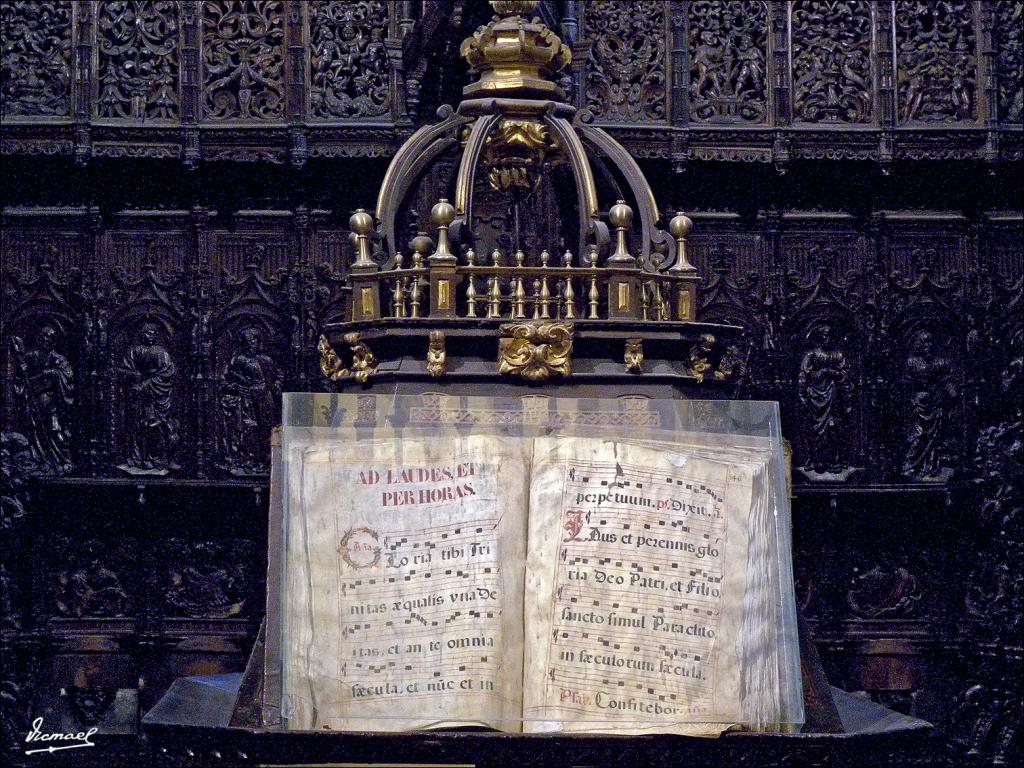 AD LAUDES, ET
PER HORAS.
Aña
Glo ria tibi Tri
nitas æqualis vna De
itas, et an te omnia
sæcula, et nūc et in
perpetuum. ps. Dixit. A.
Laus et perennis glo
ria Deo Patri, et Filio,
sancto simul Paraclito,
in sæculorum sæcula.
Psal. Confitebor. Aña
Vicmael